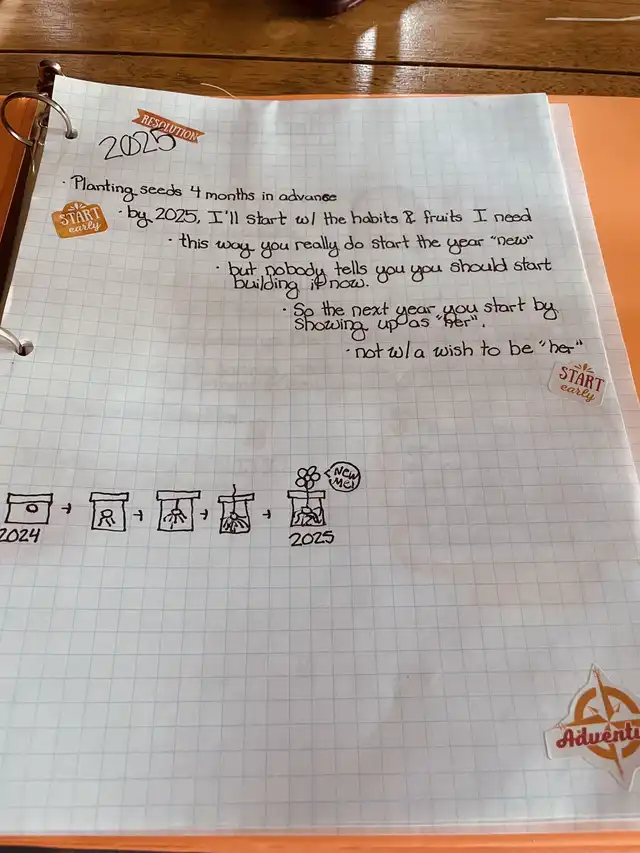 RESOLUTION
2025
· Planting seeds 4 months in advance
START
early
· by 2025, I'll start w/ the habits & fruits I need
· this way you really do start the year "new"
· but nobody tells you you should start
building it now.
· So the next year you start by
showing up as "her".
· not w/a wish to be "her"
START
early
New
Me!
2024
2025
Adventu